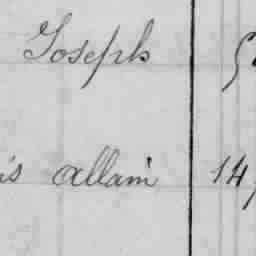 Joseph 5
is allain 14